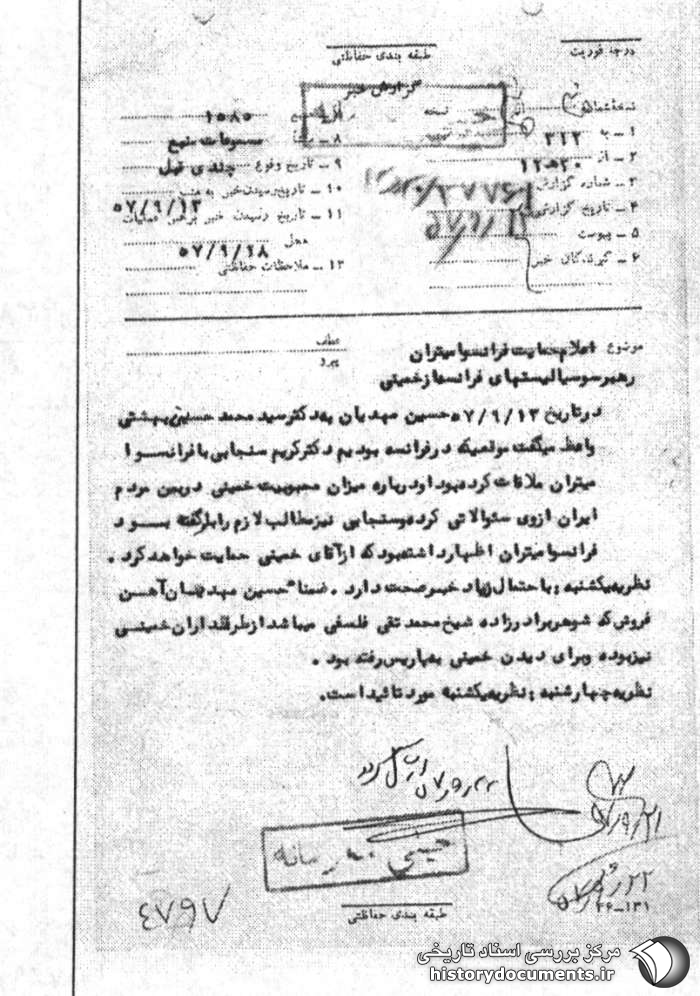 درجه فوریت
طبقه بندی حفاظتی
گزارش خبر
نسخه شماره
نسخه
۱ ـ به ۳۱۲
۲ ـ از ۲۰ ه ۱۲
۳ ـ شماره گزارش
۴ ـ تاریخ گزارش
۵ ـ پیوست
۶ ـ گیرندگان خبر
۱۵۸۵
۸ ـ مسموعات منبع
۹ ـ تاریخ وقوع چندی قبل
۱۰ ـ تاریخ رسیدن خبر به منبع
۵۷/۹/۱۳
۱۱ ـ تاریخ رسیدن خبر برهبر عملیات
محل ۵۷/۹/۱۸
۱۲ ـ ملاحظات حفاظتی
عطف
پیرو
موضوع اعلام حمایت فرانسوا میتران
رهبر سوسیالیستهای فرانسه از خمینی
در تاریخ ۵۷/۹/۱۳ حسین مهدیان به دکتر سید محمد حسینی بهشتی
واعظ میگفت موقعیکه در فرانسه بودیم دکتر کریم سنجابی با فرانسوا
میتران ملاقات کرده بود او درباره میزان محبوبیت خمینی در بین مردم
ایران از وی سئوالاتی کرده و سنجابی نیز مطالب لازم را بلو گفته بود
فرانسوا میتران اظهار داشته بود که از آقای خمینی حمایت خواهد کرد .
نظریه یکشنبه : باحتمال زیاد خبر صحت دارد . ضمنا حسین مهدیان آهن
فروش که شوهر برادرزاده شیخ محمد تقی فلسفی میباشد از طرفداران خمینی
نیز بوده و برای دیدن خمینی به پاریس رفته بود .
نظریه چهارشنبه : نظریه یکشنبه مورد تائید است .
۴۷۹۷
طبقه بندی حفاظتی
۲۶-۱۳۱
مرکز بررسی اسناد تاریخی
historydocuments.ir